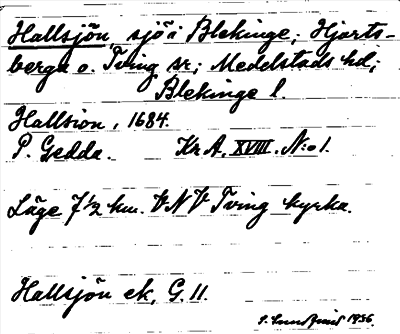 Hallsjön, sjö i Blekinge; Hjorts-
berga o. Tving sr; Medelstads hd;
Blekinge l.
Hallsion, 1684.
P. Gedda. Kr A, XVIII. N:o 1.
Läge 7 1/2 km. V N V Tving kyrka.
Hallsjön ek, G. 11.
1936